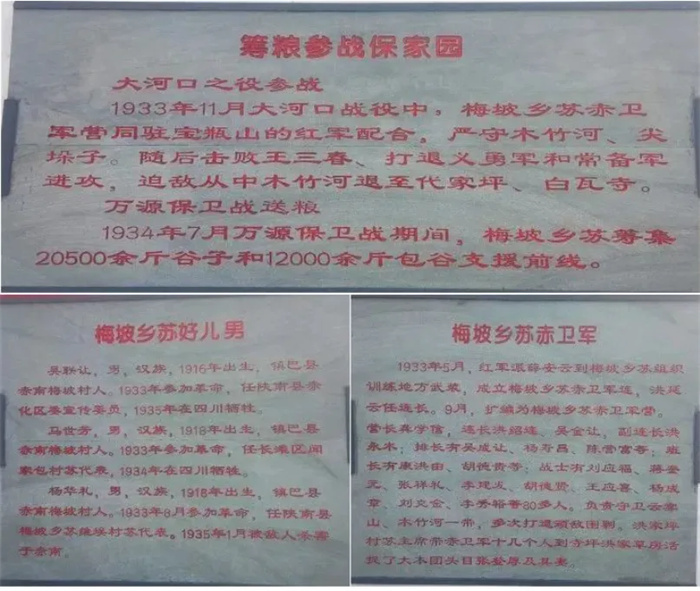 筹粮参战保家园
大河口之役参战
1933年11月大河口战役中，梅坡乡苏赤卫
军营同驻宝瓶山的红军配合，严守木竹河、尖
垛子。随后击败王三春、打退义勇军和常备军
进攻，追敌从中木竹河退至代家坪、白瓦寺。
万源保卫战送粮
1934年7月万源保卫战期间，梅坡乡苏筹集
20500余斤谷子和12000余斤包谷支援前线。
梅坡乡苏好儿男
吴联让，男，汉族，1915年出生，镇巴县
赤南梅坡村人。1933年参加革命，任陕南县赤
化区委宣传委员，1935年在四川牺牲。
马世芳，男，汉族，1918年出生，镇巴县
赤南梅坡村人。1933年参加革命，任长滩区闻
家包村苏代表，1934年在四川牺牲。
杨华礼，男，汉族，1918年出生，镇巴县
赤南梅坡村人。1933年8月参加革命，任陕南县
梅坡乡苏村苏代表。1935年1月被敌人杀害
于赤南。
梅坡乡苏赤卫军
1933年5月，红军派薛安云到梅坡乡苏组织
训练地方武装，成立梅坡乡苏赤卫军连，洪延
云任连长。9月，扩编为梅坡乡苏赤卫军营。
营长真学信，连长洪绍连、吴金让，副连长洪
永木；排长有吴成让、杨寿昌、陈营富等；班
长有康洪由、胡德贵等；战士有刘应福、蒋登
元、张祥礼、李现发、胡德贤、王应喜、杨成
章、刘克会、李秀裕等80多人。负责守卫云
山、木竹河一带，多次打退顽敌围剿。洪家坪
村苏主席带赤卫军十几个人到寺坪洪家草房活
捉了大本团头目张登厚及其妻。